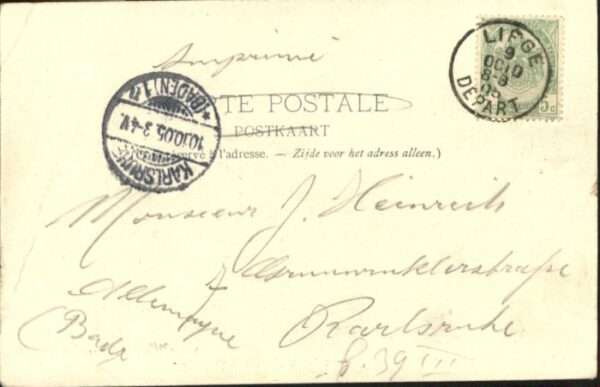 Imprimé
LIEGE
9
OCTO
8-9
05
DEPART
5c
*(BADEN)1
10.10.05.3-4 V.
KARLSRUHE
CARTE POSTALE
POSTKAART
à l'adresse. — Zijde voor het adress alleen.)
Monsieur J. Heinrich
Karlsruhe
Allemagne
(Bade
39 III